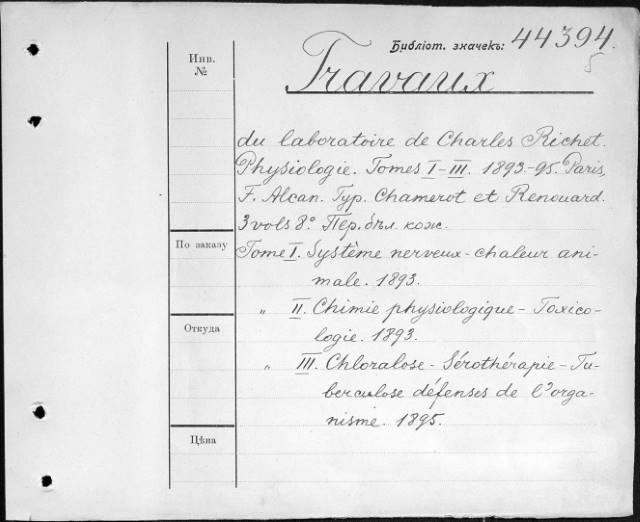 Библіот. значекъ: 44394.
5
Инв.
№
Travaux
du laboratoire de Charles Richet.
Physiologie. Tomes I-III. 1893.-95. Paris,
F. Alcan. Typ. Chamerot et Renouard.
3 vols 8.° Пер. бѣл. кож.
По заказу
Tome I. Système nerveux - chaleur ani-
male. 1893.
„ II. Chimie physiologique - Toxico-
logie. 1893.
Откуда
„ III. Chloralose - Sérothérapie - Tu-
berculose défenses de l'orga-
nisme. 1895.
Цѣна